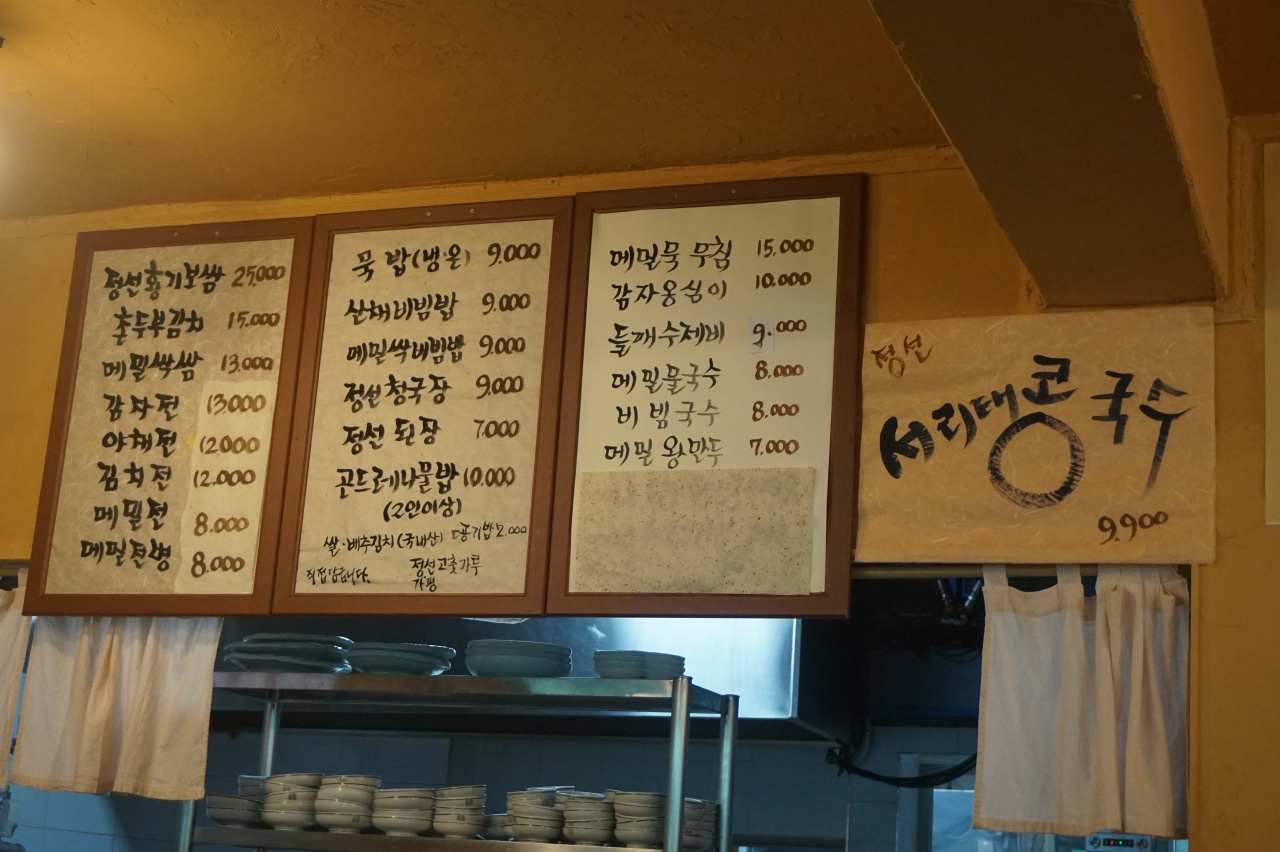 정선황기보쌈 25,000
촌두부김치 15.000
메밀싹쌈 13.000
감자전 13.000
야채전 12.000
김치전 12.000
메밀전 8.000
메밀전병 8.000
묵밥(냉·온) 9.000
산채비빔밥 9.000
메밀싹비빔밥 9.000
정선청국장 9.000
정선된장 7.000
곤드레나물밥 10.000
(2인이상)
쌀·배추김치(국내산) 공기밥2.000
정선고춧가루
메밀묵 무침 15.000
감자옹심이 10.000
들깨수제비 9.000
메밀물국수 8.000
비빔국수 8.000
메밀 왕만두 7.000
정선
서리태콩국수
9.900